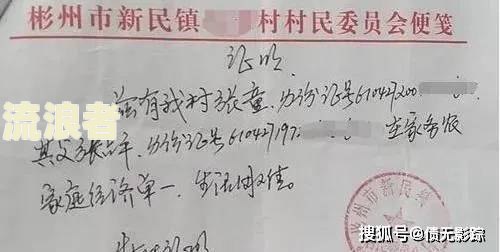 彬州市新民镇 村村民委员会便笺
证明
兹有我村张童,身份证号610427200
其父张 平,身份证号61042719 在家务农
家庭经济单一,生活困难。
特此证明
流浪者
彬州市新民镇
搜狐号@债无影踪